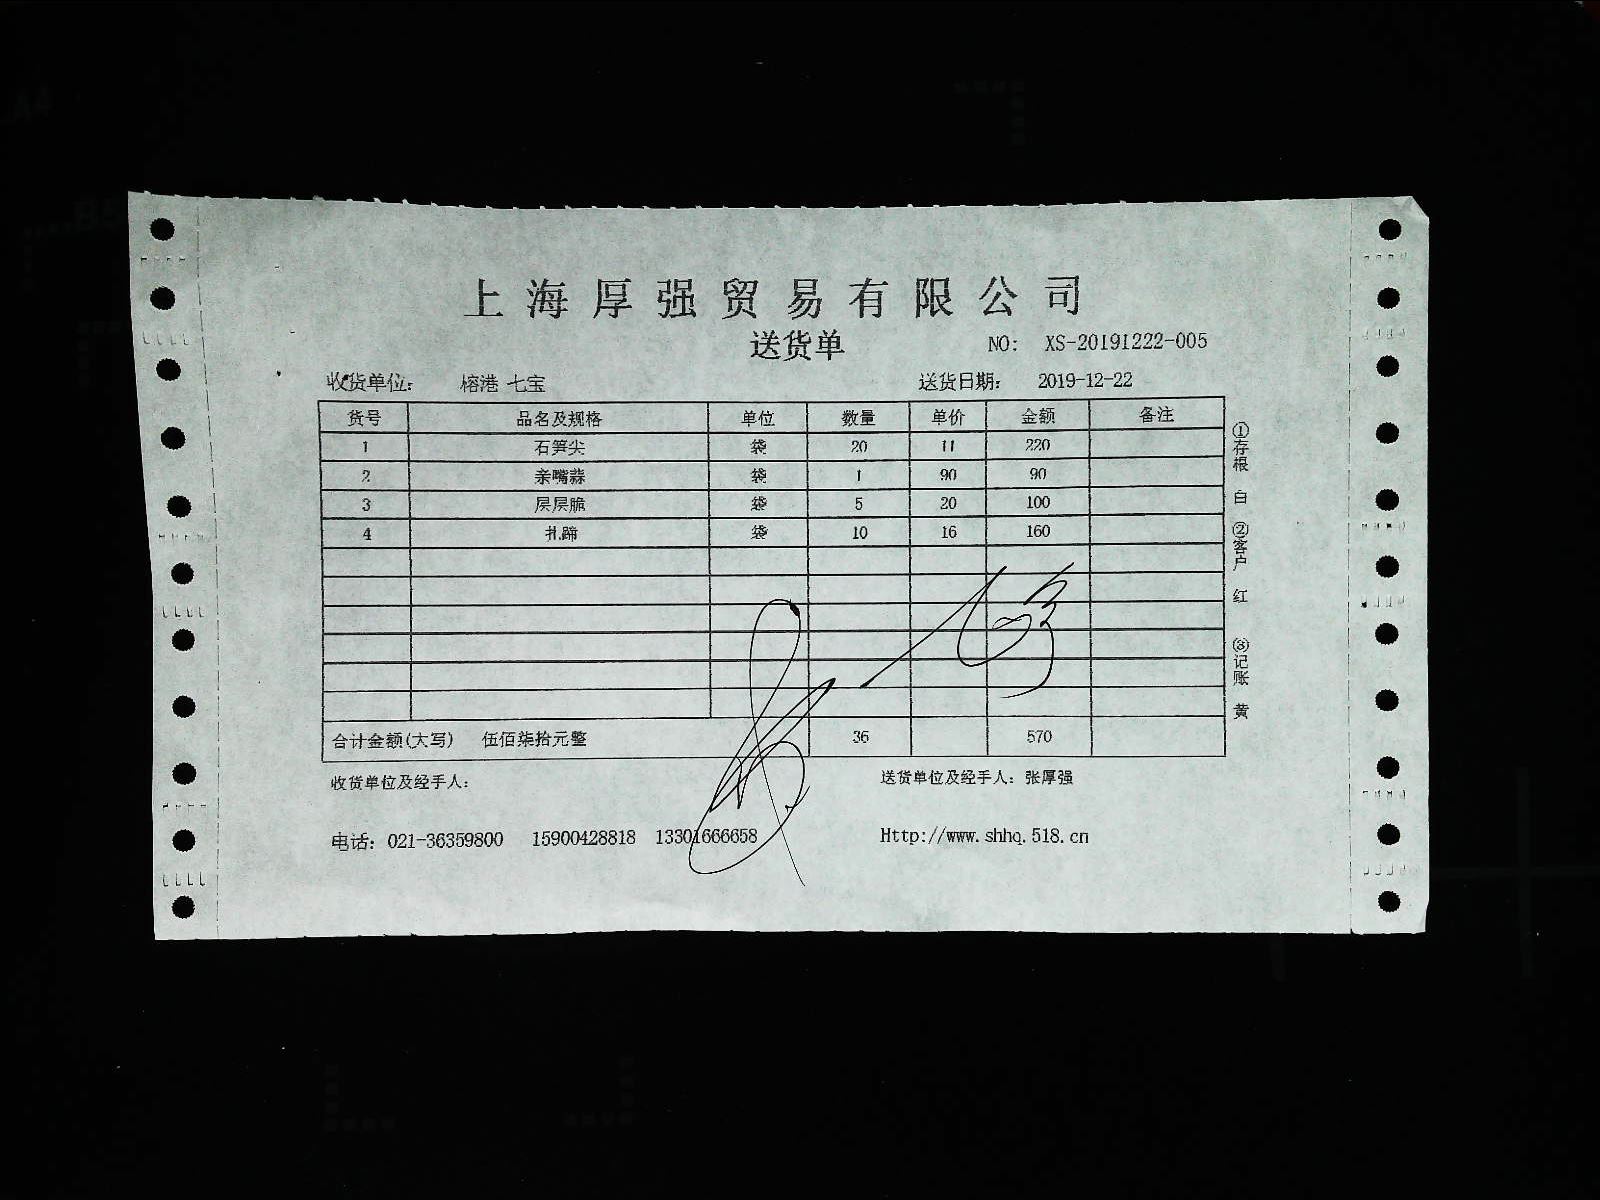 上海厚强贸易有限公司
送货单
NO: XS-20191222-005
收货单位: 榕港 七宝 送货日期: 2019-12-22
货号 品名及规格 单位 数量 单价 金额 备注
1 石笋尖 袋 20 11 220
2 亲嘴蒜 袋 1 90 90
3 层层脆 袋 5 20 100
4 扎蹄 袋 10 16 160
合计金额(大写) 伍佰柒拾元整 36 570
收货单位及经手人: 送货单位及经手人: 张厚强
电话: 021-36359800 15900428818 13301666658 Http://www.shhq.518.cn
①存根 白 ②客户 红 ③记账 黄